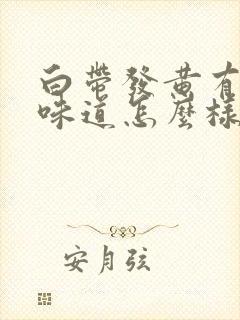 白帶發黄有
味道怎麽樣
安月弦